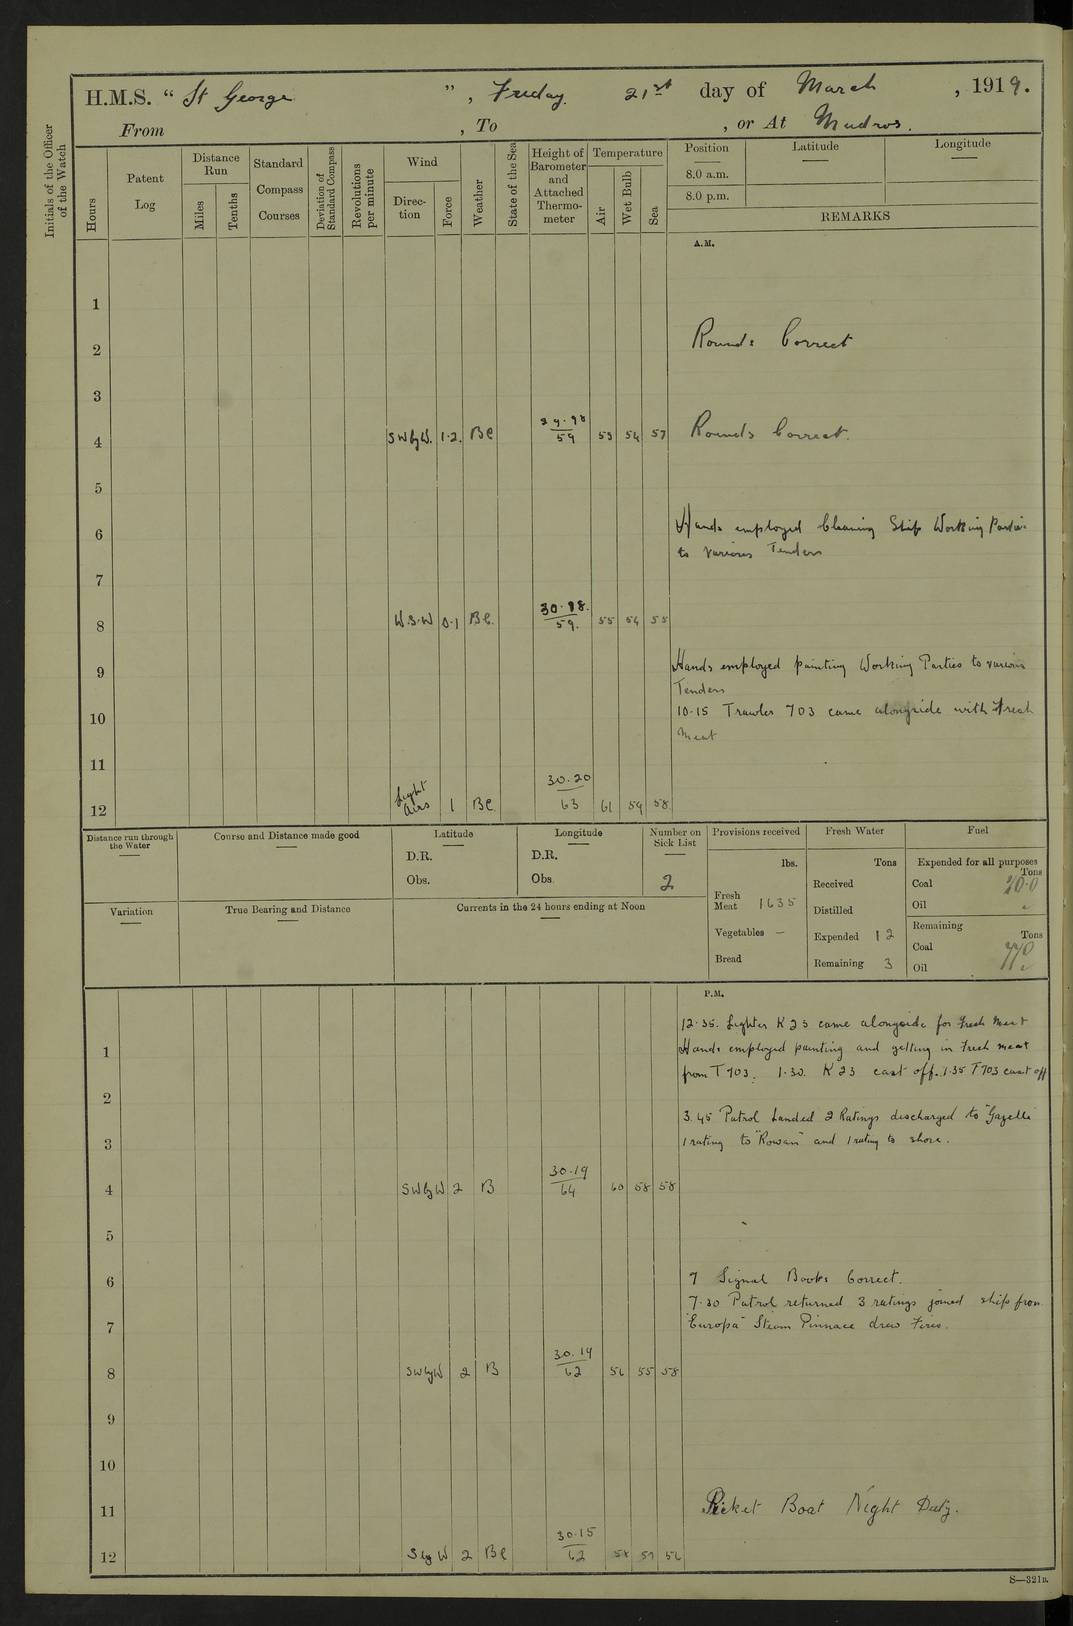 H.M.S. “ St George ” , Friday. 21st day of March , 1919.
From , To , or At Mudros.
Initials of the Officer
of the Watch
Hours
Patent
Log
Distance
Run
Miles
Tenths
Standard
Compass
Courses
Deviation of
Standard Compass
Revolutions
per minute
Wind
Direc-
tion
Force
Weather
State of the Sea
Height of
Barometer
and
Attached
Thermo-
meter
Temperature
Air
Wet Bulb
Sea
Position
8.0 a.m.
8.0 p.m.
Latitude
Longitude
REMARKS
A.M.
1
2 Rounds Correct
3
4 SWbyW. 1·2. Bc 59 53 54 57 Rounds Correct.
5
6 Hands employed Cleaning Ship Working Parties
to various Tenders
7
30·18.
8 W.S.W 0·1 Bc. 59. 55 54 55
9 Hands employed painting Working Parties to various
Tenders
10 10·15 Trawler 703 came alongside with Fresh
Meat
11
30.20
12 Light Airs 1 Bc 63 61 59 58
Distance run through
the Water
Course and Distance made good
Latitude
D.R.
Obs.
Longitude
D.R.
Obs.
Number on
Sick List
2
Provisions received
lbs.
Fresh
Meat 1635
Vegetables —
Bread
Fresh Water
Tons
Received
Distilled
Expended 12
Remaining 3
Fuel
Expended for all purposes
Tons
Coal 20·0
Oil
Remaining
Tons
Coal 770
Oil
Variation
True Bearing and Distance
Currents in the 24 hours ending at Noon
P.M.
12·35. Lighter K23 came alongside for Fresh Meat
1 Hands employed painting and getting in Fresh meat
from T703. 1·30. K23 cast off. 1·35 T703 cast off
2
3.45 Patrol Landed 2 Ratings discharged to "Gazelle"
3 1 rating to "Rowan" and 1 rating to shore.
30·19
4 SWbyW 2 B 64 60 58 58
5
6 7 Signal Books Correct.
7·30 Patrol returned 3 ratings joined ship from
7 "Europa" Steam Pinnace drew Fires.
30.19
8 SWbyW 2 B 62 56 55 58
9
10
11 Picket Boat Night Duty.
30·15
12 SbyW 2 Bc 62 58 57 56
S—321B.